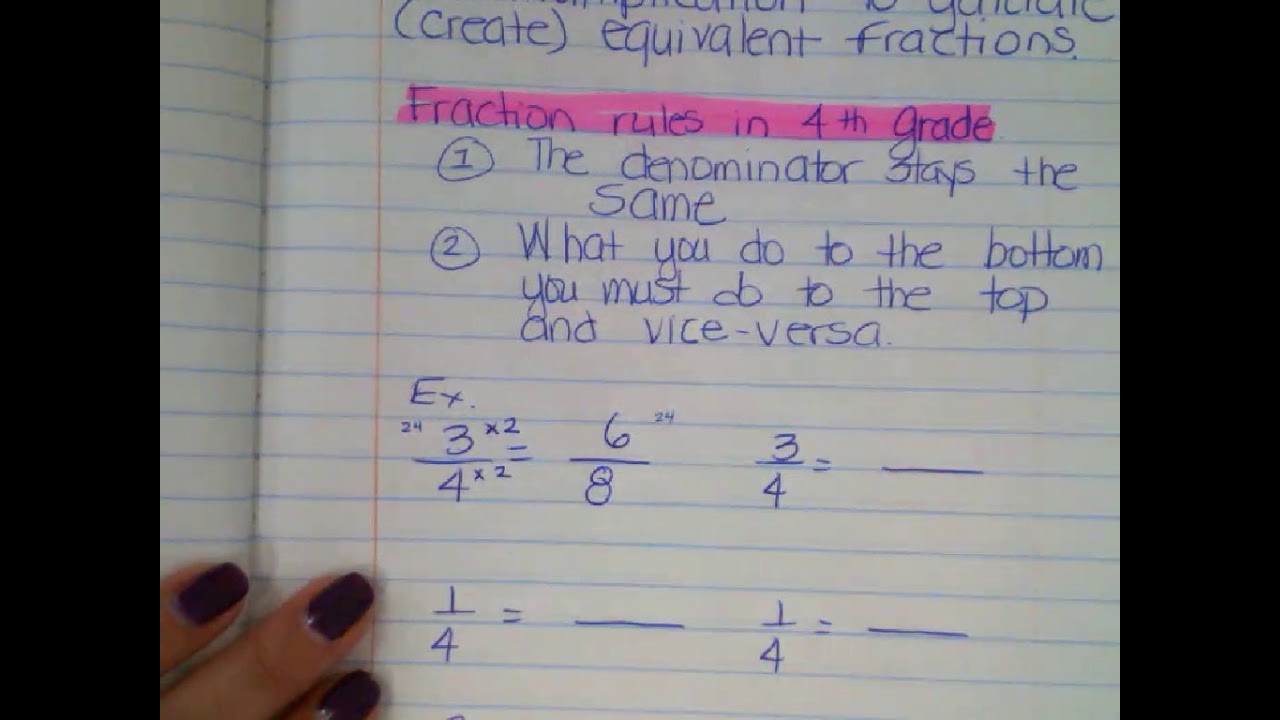 to
(create) equivalent fractions.
Fraction rules in 4th grade
① The denominator stays the
same
② What you do to the bottom
you must do to the top
and vice-versa.
Ex.
24 3 x2 = 6 24 3 = ___
4 x2 8 4
1 = ___ 1 = ___
4 4